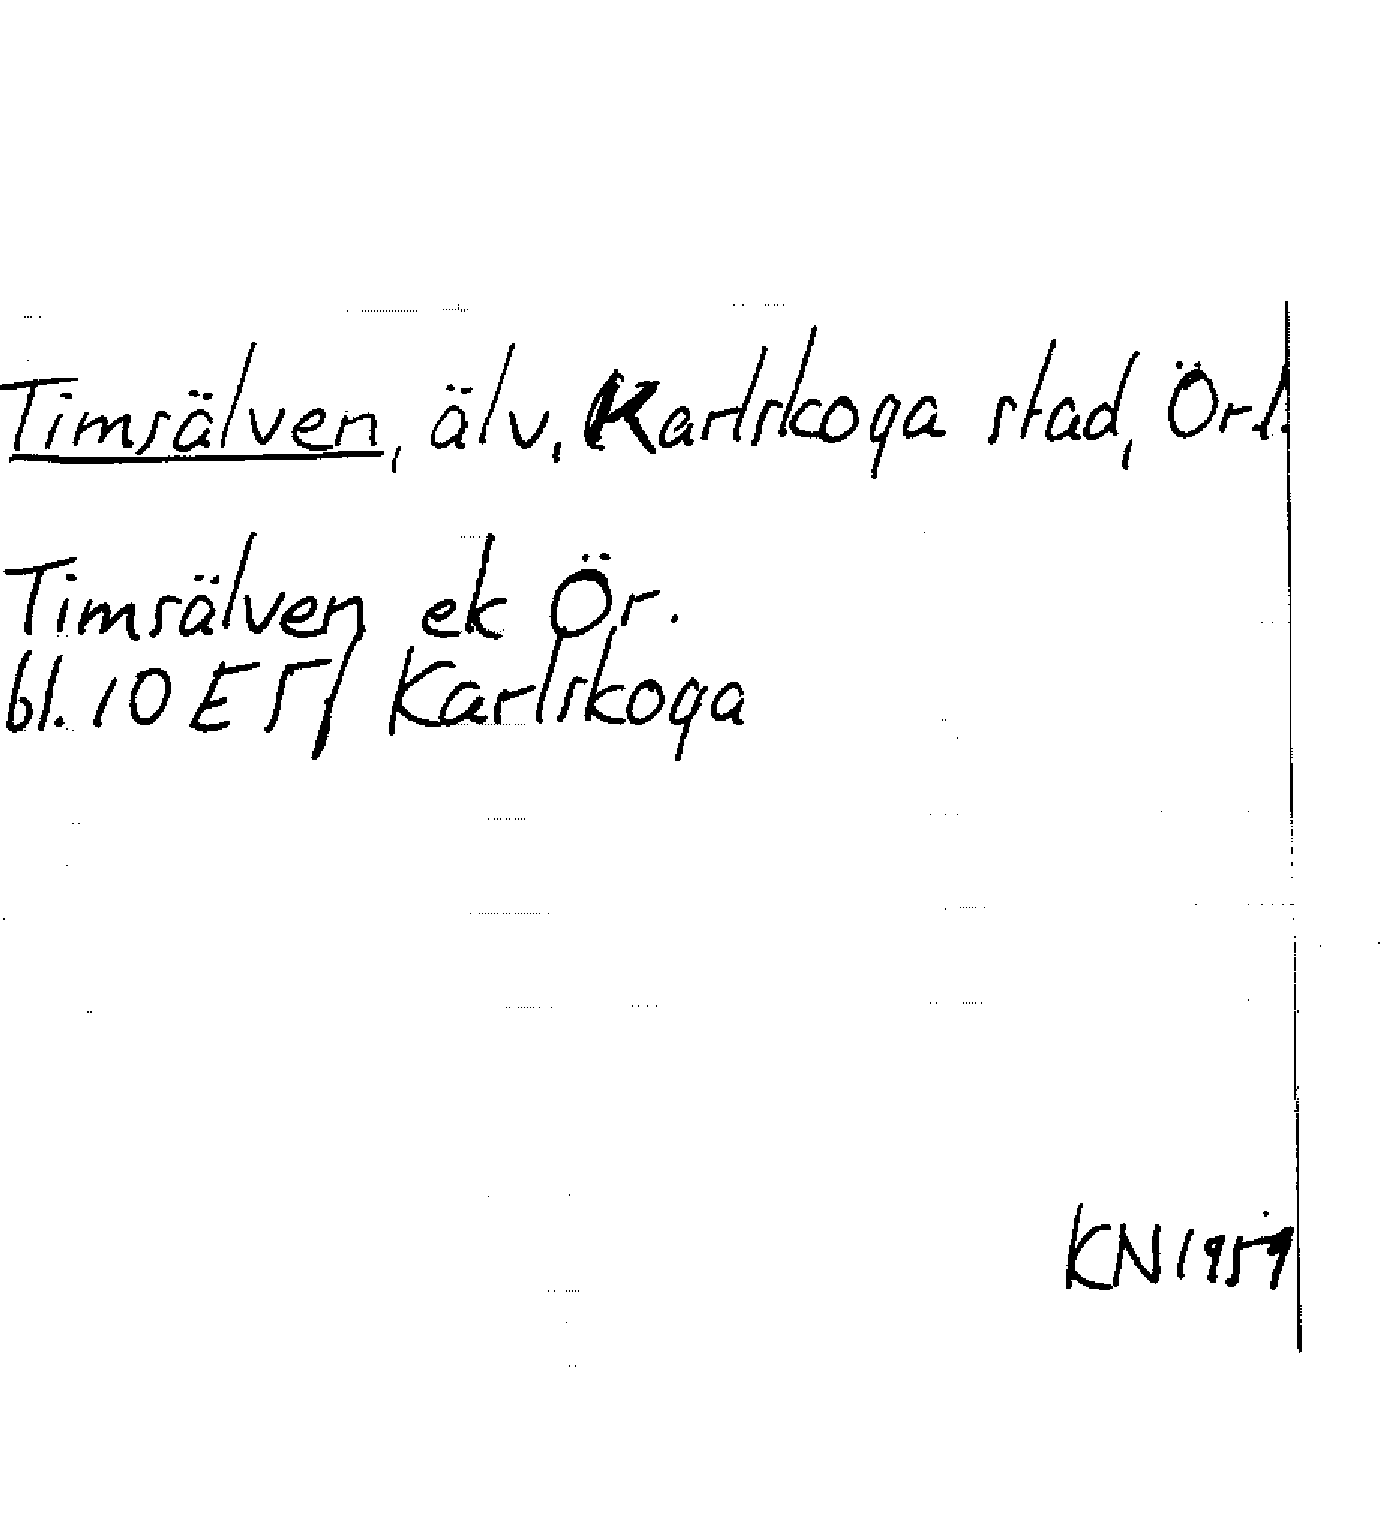 Timsälven, älv, Karlskoga stad, Örl.
Timsälven ek Ör.
bl. 10 E 5f Karlskoga
KN 1959